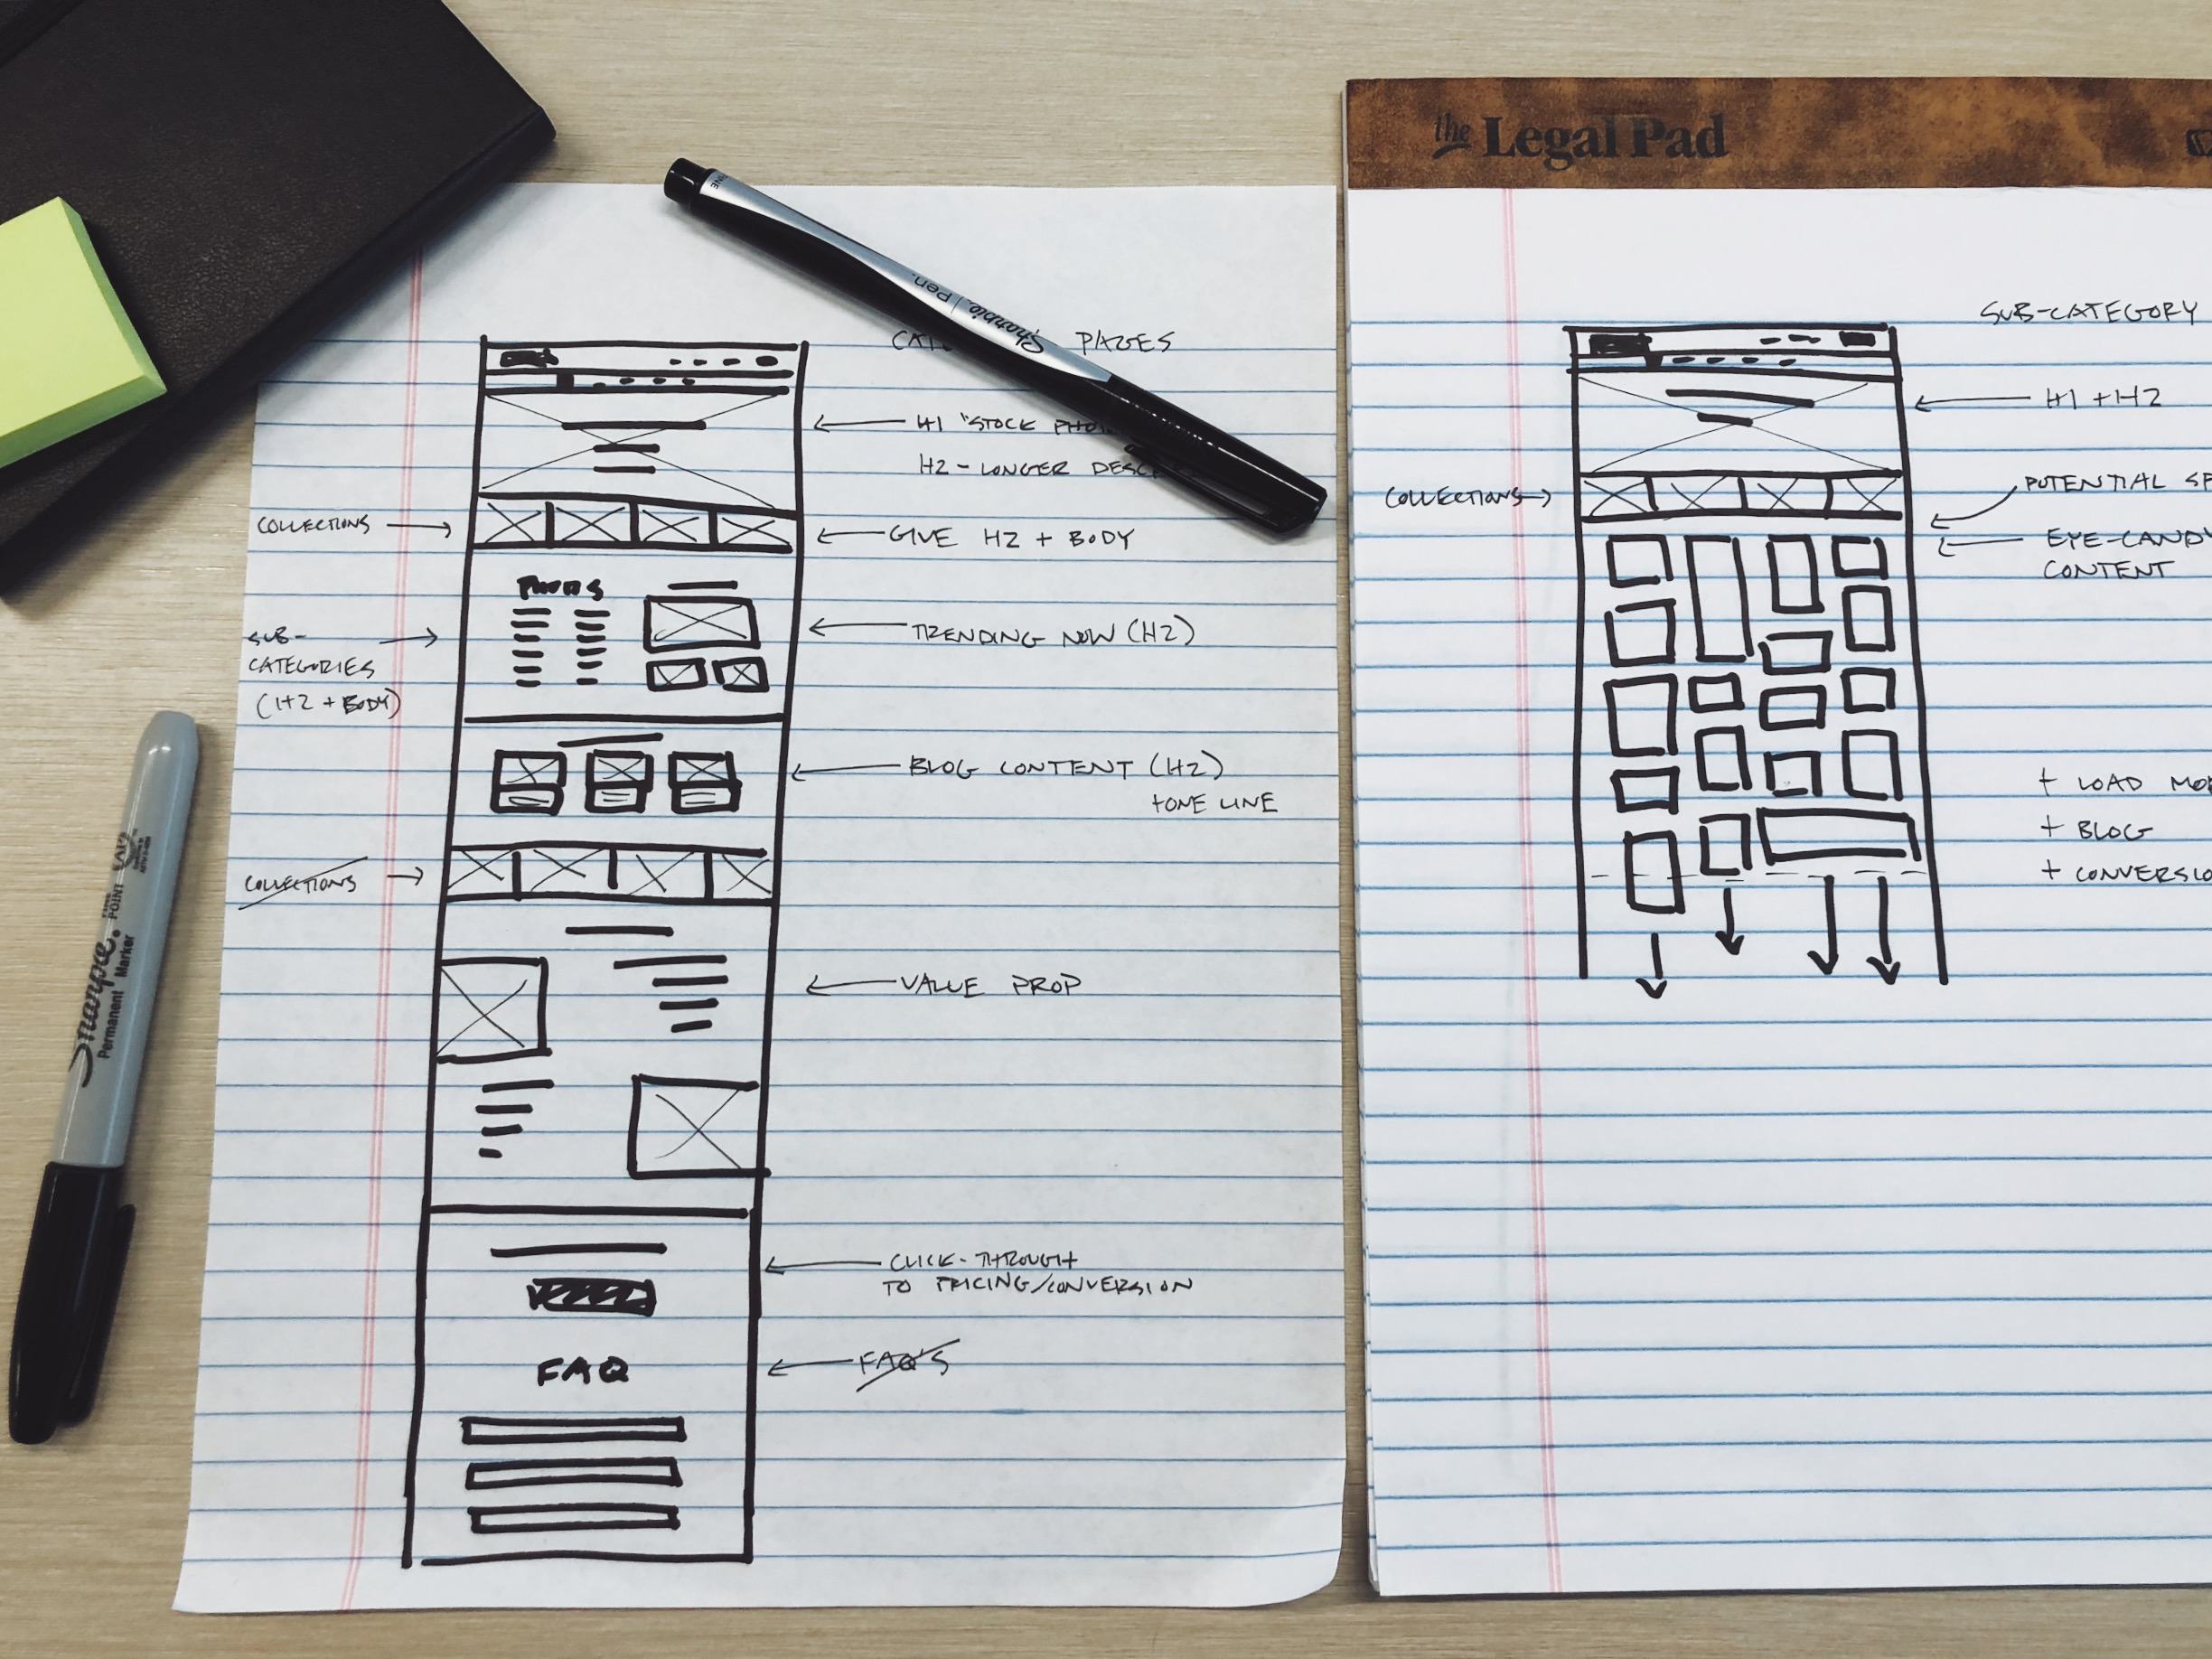 the Legal Pad
Sharpie. Pen.
PAGES
H1 "STOCK
H2 - LONGER
COLLECTIONS
GIVE H2 + BODY
PHOTOS
SUB-
CATEGORIES
(H2 + BODY)
TRENDING NOW (H2)
BLOG CONTENT (H2)
+ONE LINE
COLLECTIONS
VALUE PROP
CLICK-THROUGH
TO PRICING/CONVERSION
FAQ
FAQ'S
Sharpie.
FINE POINT
Permanent Marker
SUB-CATEGORY
H1 + H2
COLLECTIONS
POTENTIAL
EYE-CANDY
CONTENT
+ LOAD
+ BLOG
+